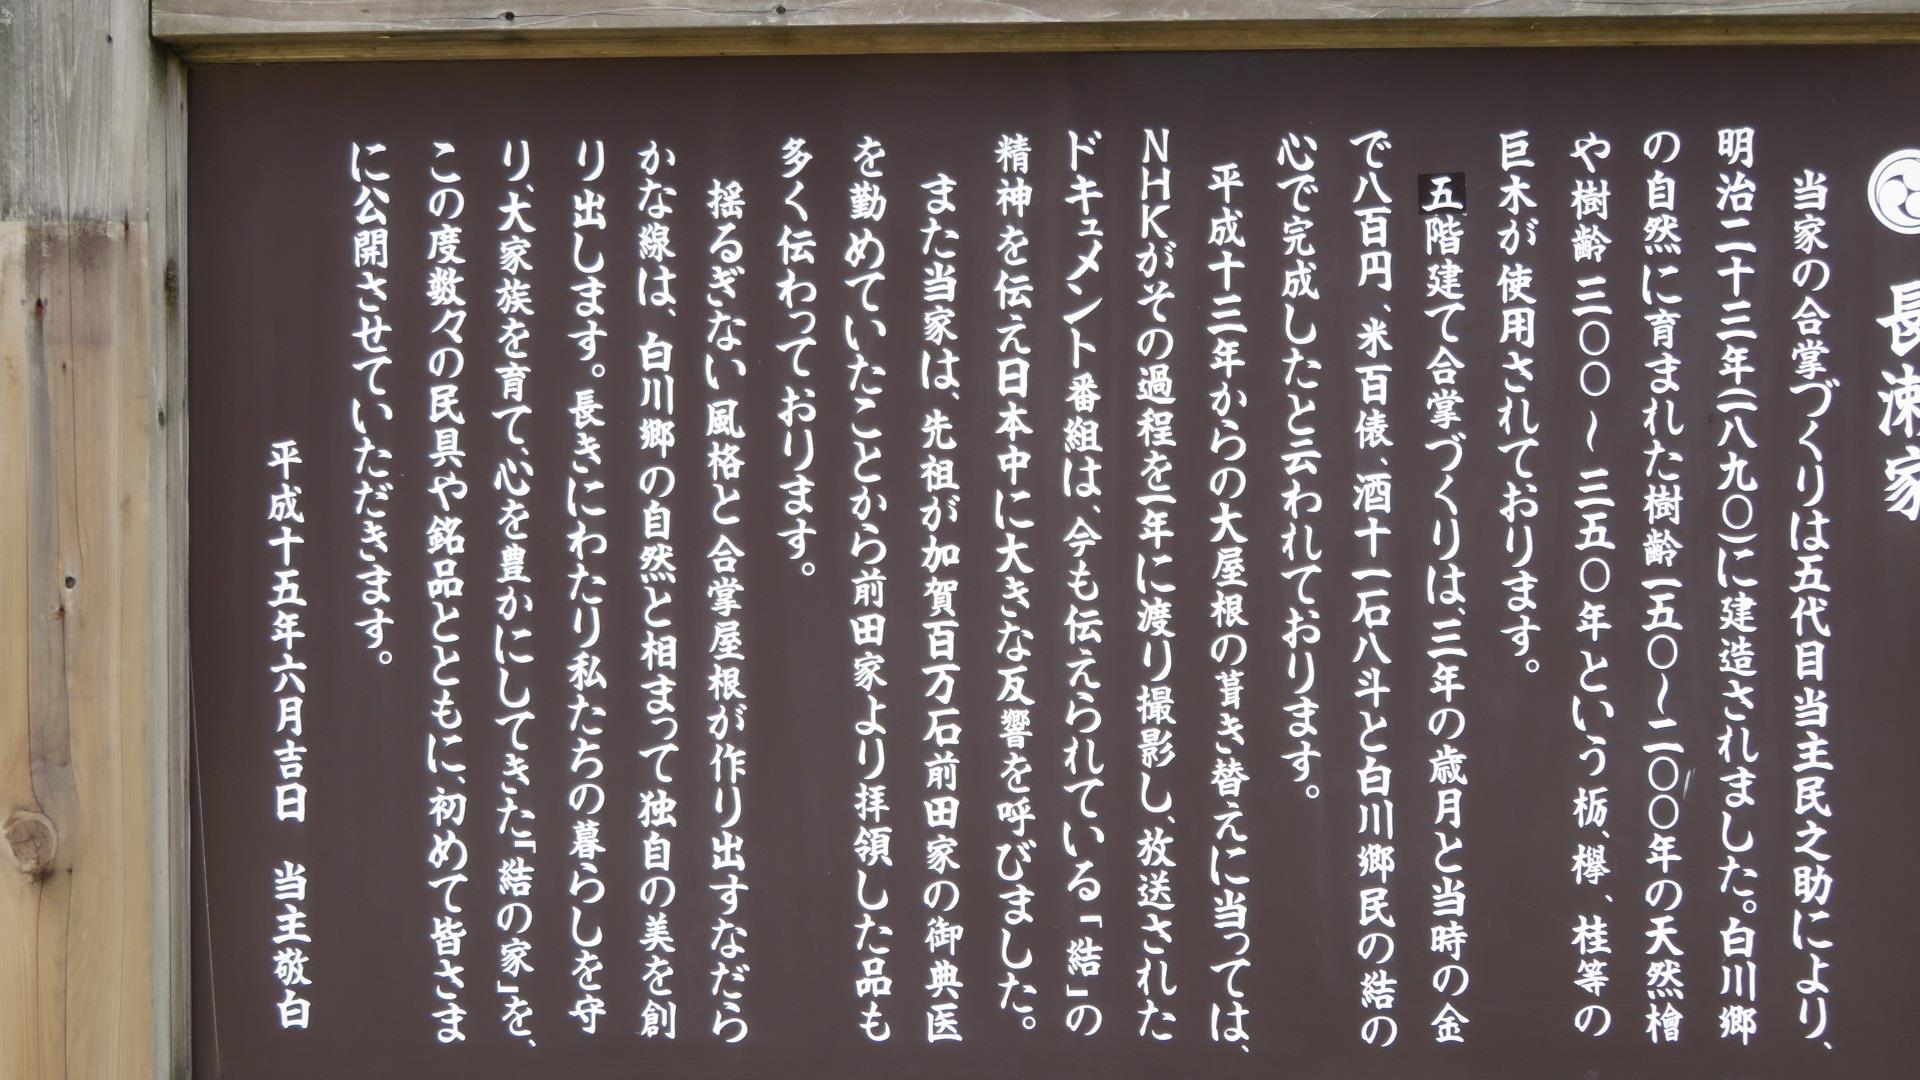 長瀬家
当家の合掌づくりは五代目当主民之助により、
明治二十三年(一八九〇)に建造されました。白川郷
の自然に育まれた樹齢一五〇〜二〇〇年の天然檜
や樹齢三〇〇〜三五〇年という栃、欅、桂等の
巨木が使用されております。
五階建て合掌づくりは、三年の歳月と当時の金
で八百円、米百俵、酒十一石八斗と白川郷民の結の
心で完成したと云われております。
平成十三年からの大屋根の葺き替えに当っては、
NHKがその過程を一年に渡り撮影し、放送された
ドキュメント番組は、今も伝えられている「結」の
精神を伝え日本中に大きな反響を呼びました。
また当家は、先祖が加賀百万石前田家の御典医
を勤めていたことから前田家より拝領した品も
多く伝わっております。
揺るぎない風格と合掌屋根が作り出すなだら
かな線は、白川郷の自然と相まって独自の美を創
り出します。長きにわたり私たちの暮らしを守
り、大家族を育て、心を豊かにしてきた「結の家」を、
この度数々の民具や銘品とともに、初めて皆さま
に公開させていただきます。
平成十五年六月吉日　当主敬白